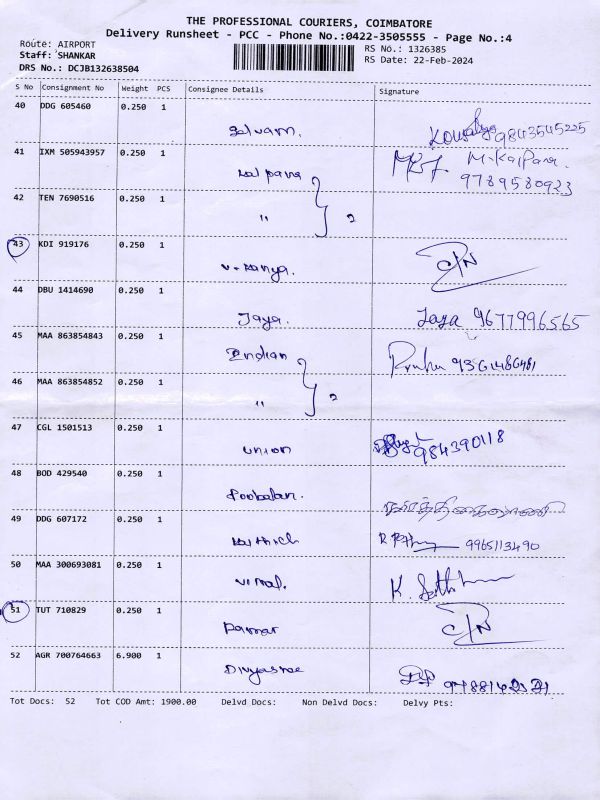 THE PROFESSIONAL COURIERS, COIMBATORE
Delivery Runsheet - PCC - Phone No.:0422-3505555 - Page No.:4
Route: AIRPORT
Staff: SHANKAR
DRS No.: DCJB132638504
RS No.: 1326385
RS Date: 22-Feb-2024
S No Consignment No Weight PCS Consignee Details Signature
40 DDG 605460 0.250 1
Selvam. 9843545225
41 IXM 505943957 0.250 1
Kalpana M.Kalpana.
9789580923
42 TEN 7690516 0.250 1
" } 2
43 KDI 919176 0.250 1
V. Kanya. C/N
44 DBU 1414690 0.250 1
Jaya. Jaya 9677996565
45 MAA 863854843 0.250 1
Indian
46 MAA 863854852 0.250 1
" } 2
47 CGL 1501513 0.250 1
union 984390118
48 BOD 429540 0.250 1
Poobalan.
49 DDG 607172 0.250 1
9965113490
50 MAA 300693081 0.250 1
Vimal.
51 TUT 710829 0.250 1
C/N
52 AGR 700764663 6.900 1
Divyasree
Tot Docs: 52 Tot COD Amt: 1900.00 Delvd Docs: Non Delvd Docs: Delvy Pts: